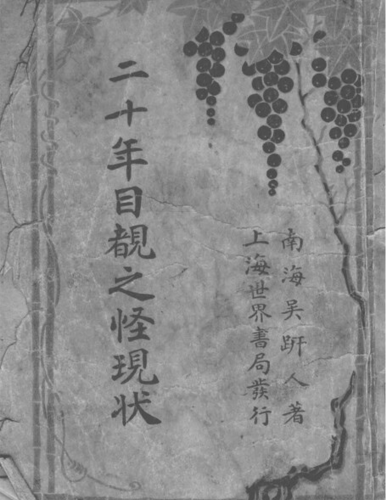 南海吳趼人著
上海世界書局發行
二十年目覩之怪現状